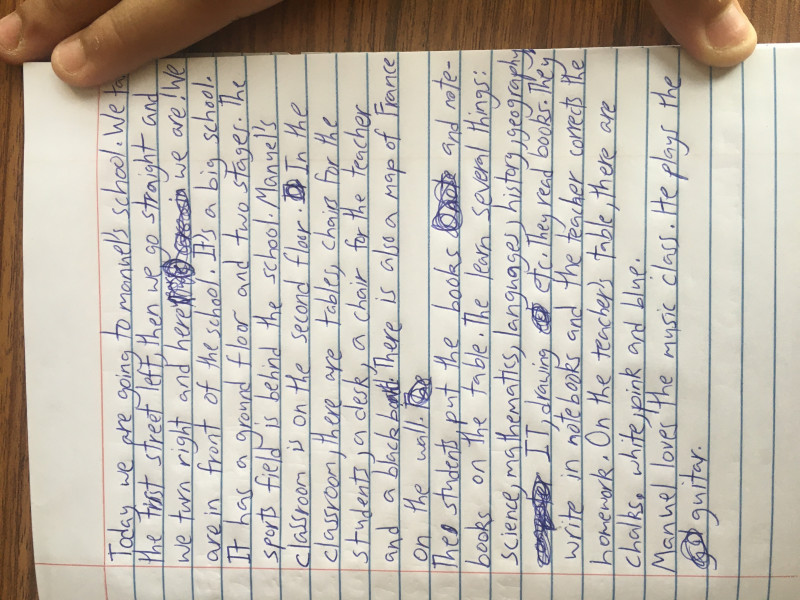 Today we are going to manuel's school. We ta
the first street left, then we go straight and
we turn right and here we are. We
are in front of the school. It's a big school.
It has a ground floor and two stages. The
sports field is behind the school. Manuel's
classroom is on the second floor. In the
classroom, there are tables, chairs for the
students, a desk a chair for the teacher
and a black There is also a map of France
on the wall.
The students put the books and note-
books on the table. The learn several things:
Science, mathematics, languages, history, geography,
IT, drawing etc. They read books. They
write in notebooks and the teacher corrects the
homework. On the teacher's table, there are
chalks, white, pink and blue.
Manuel loves the music class. He plays the
guitar.